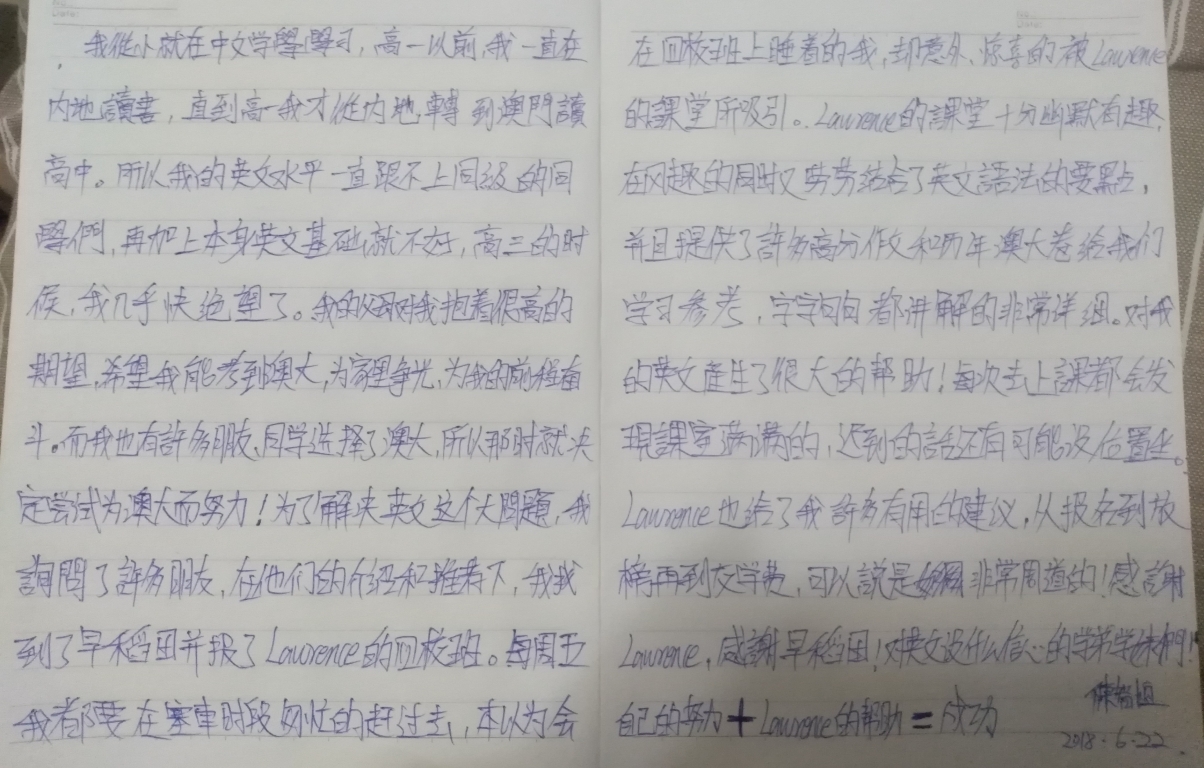 我從小就在中文学學習，高一以前，我一直在
内地讀書，直到高一我才從内地轉到澳門讀
高中。所以我的英文水平一直跟不上同级的同
學們，再加上本身英文基础就不好，高三的时
候，我几乎快绝望了。我的父母对我抱着很高的
期望，希望我能考到澳大，为家里争光，为我的前程奋
斗。而我也有許多朋友、同学选择了澳大，所以那时就决
定尝试为澳大而努力！为了解决英文这个大問題，我
詢問了許多朋友，在他们的介绍和推荐下，我找
到了早稻田并报了Lawrence的回校班。每周五
我都要在塞車时段匆忙的赶过去，本以为会
在回校班上睡着的我，却意外、惊喜的被Lawrence
的課堂所吸引。Lawrence的課堂十分幽默有趣，
在风趣的同时又劳劳结合了英文語法的要點，
并且提供了許多高分作文和历年澳大卷给我们
学习参考，字字句句都讲解的非常详细。对我
的英文產生了很大的帮助！每次去上課都会发
現課室满满的，迟到的話还有可能没位置坐。
Lawrence也给了我許多有用的建议，从报名到放
榜再到交学费，可以説是非常周道的！感謝
Lawrence，感謝早稻田！对英文没什么信心的学弟学妹們！
自己的努力+Lawrence的帮助=成功
2018.6.22.